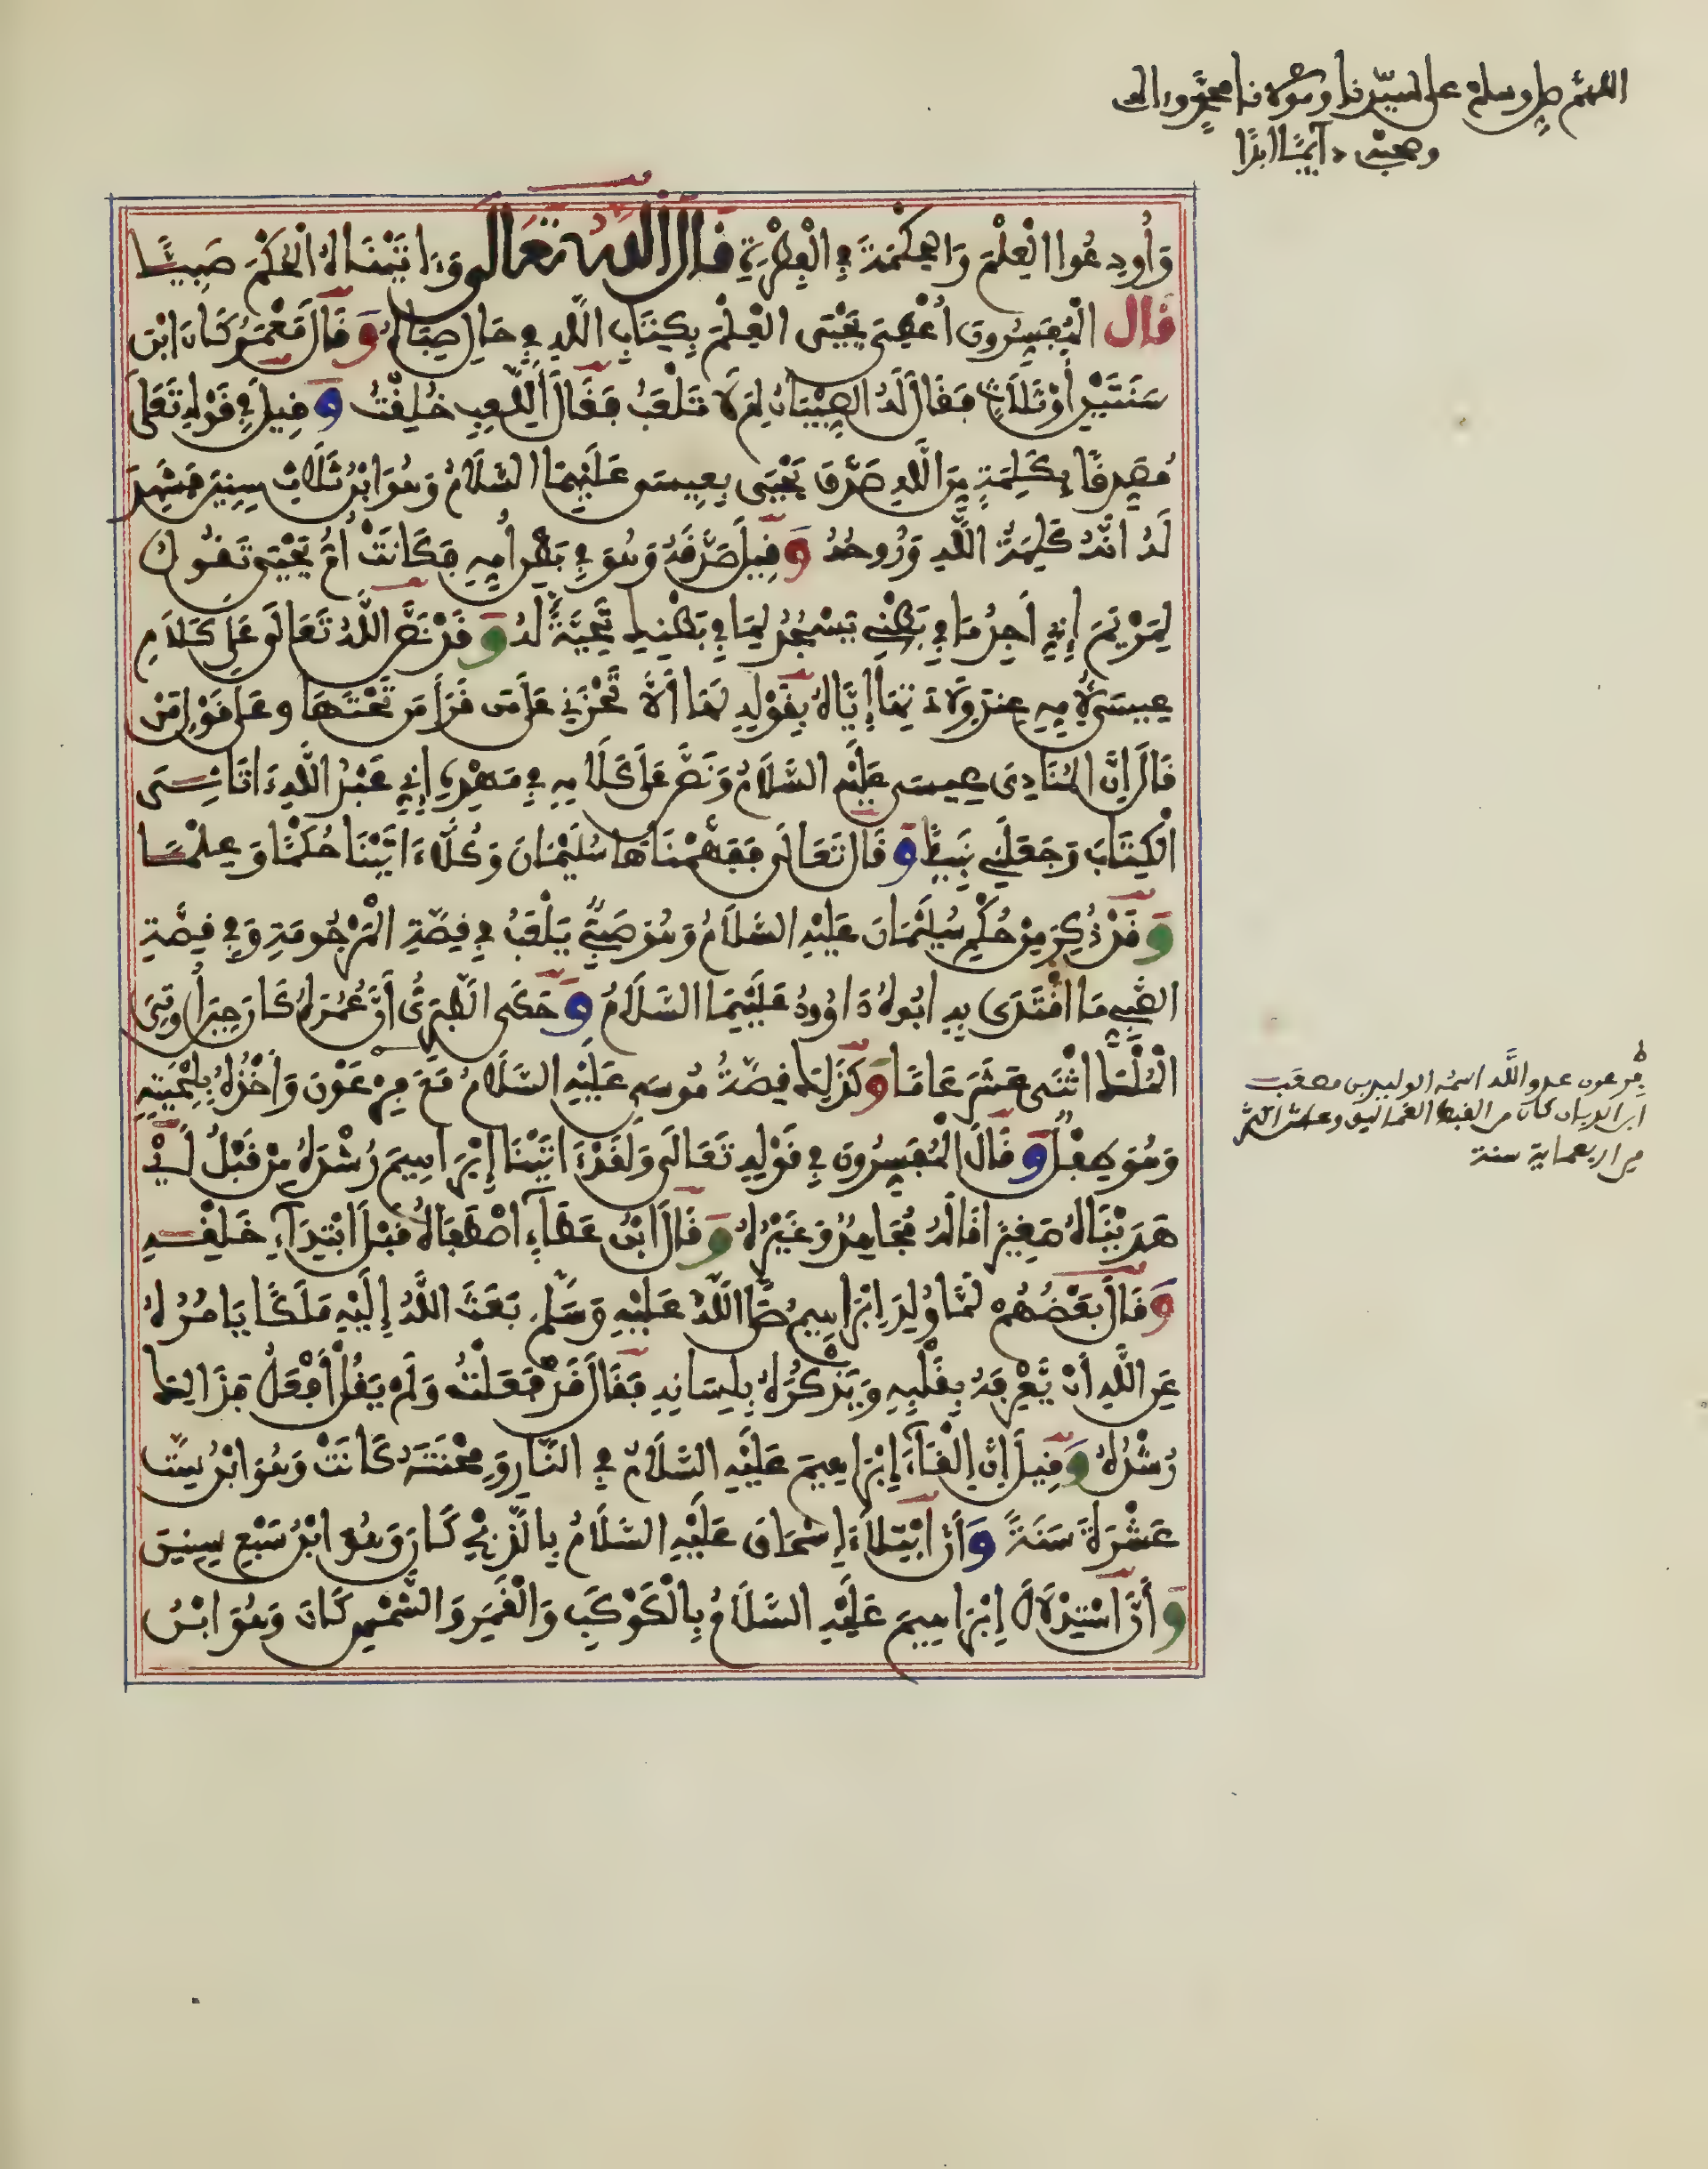 اللهم صل وسلم على سيدنا ومولانا محمد واله
وصحبه دايما ابدا
وَأُودِعُوا الْعِلْمَ وَالْحِكْمَةَ فِي الْفِطْرَةِ قَالَ اللَّهُ تَعَالَى وَءَاتَيْنَاهُ الْحُكْمَ صَبِيًّا
قال الْمُفَسِّرُونَ أُعْطِيَ يَحْيَى الْعِلْمَ بِكِتَابِ اللَّهِ فِي حَالِ صِبَاهُ وَقَالَ مَعْمَرٌ كَانَ ابْنَ
سَنَتَيْنِ أَوْ ثَلَاثٍ فَقَالَ لَهُ الصِّبْيَانُ لِمَ لَا تَلْعَبُ فَقَالَ أَلِلَّعِبِ خُلِقْتُ وَقِيلَ فِي قَوْلِهِ تَعَلَى
مُصَدِّقًا بِكَلِمَةٍ مِنَ اللَّهِ صَدَّقَ يَحْيَى بِعِيسَى عَلَيْهِمَا السَّلَامُ وَهُوَ ابْنُ ثَلَاثِ سِنِينَ فَشَهِدَ
لَهُ انَّهُ كَلِمَةُ اللَّهِ وَرُوحُهُ وَقِيلَ صَدَّقَهُ وَهُوَ فِي بَطْنِ أُمِّهِ فَكَانَتْ أُمُّ يَحْيَى تَقُولُ
لِمَرْيَمَ إِنِّي أَجِدُ مَا فِي بَطْنِي يَسْجُدُ لِمَا فِي بَطْنِكِ تَحِيَّةً لَهُ وَقَدْ نَصَّ اللَّهُ تَعَالَى عَلَى كَلَامِ
عِيسَى لِأُمِّهِ عِنْدَ وِلَادَتِهَا إِيَّاهُ بِقَوْلِهِ لَهَا أَلَّا تَحْزَنِي عَلَى مَنْ قَرَأَ مَنْ تَحْتَهَا وعَلَى قَوْلِ مَنْ
قَالَ إِنَّ الْمُنَادِيَ عِيسَى عَلَيْهِ السَّلَامُ وَنَصَّ عَلَى كَلَامِهِ فِي مَهْدِهِ إِنِّي عَبْدُ اللَّهِ ءَاتَانِيَ
الْكِتَابَ وَجَعَلَنِي نَبِيًّا وَقَالَ تَعَالَى فَفَهَّمْنَاهَا سُلَيْمَانَ وَكُلًّا ءَاتَيْنَا حُكْمًا وَعِلْمًا
وَقَدْ ذُكِرَ مِنْ حُكْمِ سُلَيْمَانَ عَلَيْهِ السَّلَامُ وَهُوَ صَبِيٌّ يَلْعَبُ فِي قِصَّةِ الْمَرْجُومَةِ وَفِي قِصَّةِ
الصَّبِيِّ مَا اقْتَدَى بِهِ ابُوهُ دَاوُودُ عَلَيْهِمَا السَّلَامُ وَحَكَى الطَّبَرِيُّ أَنَّ عُمْرَهُ كَانَ حِينَ أُوتِيَ
الْمُلْكَ اثْنَى عَشَرَ عَامًا وَكَذَلِكَ قِصَّةُ مُوسَى عَلَيْهِ السَّلَامُ مَعَ فِرْعَوْنَ وَأَخْذُهُ بِلِحْيَتِهِ
وَهُوَ طِفْلٌ وَقَالَ الْمُفَسِّرُونَ فِي قَوْلِهِ تَعَالَى وَلَقَدْ ءَاتَيْنَا إِبْرَاهِيمَ رُشْدَهُ مِنْ قَبْلُ أَيْ
هَدَيْنَاهُ صَغِيرًا قَالَهُ مُجَاهِدٌ وَغَيْرُهُ وَقَالَ ابْنُ عَطَاءٍ اصْطَفَاهُ قَبْلَ ابْتِدَاءِ خَلْقِهِ
وَقَالَ بَعْضُهُمْ لَمَّا وُلِدَ إِبْرَاهِيمُ صَلَّى اللَّهُ عَلَيْهِ وَسَلَّمَ بَعَثَ اللَّهُ إِلَيْهِ مَلَكًا يَامُرُهُ
عَنِ اللَّهِ أَنْ يَعْرِفَهُ بِقَلْبِهِ وَيَذْكُرَهُ بِلِسَانِهِ فَقَالَ قَدْ فَعَلْتُ وَلَمْ يَقُلْ أَفْعَلُ فَذَالِكَ
رُشْدُهُ وَقِيلَ إِنَّ إِلْقَاءَ إِبْرَاهِيمَ عَلَيْهِ السَّلَامُ فِي النَّارِ وَمِحْنَتَهُ كَانَتْ وَهُوَ ابْنُ سِتَّ
عَشْرَةَ سَنَةً وَأَنَّ ابْتِلَاءَ إِسْحَاقَ عَلَيْهِ السَّلَامُ بِالذَّبْحِ كَانَ وَهُوَ ابْنُ سَبْعِ سِنِينَ
وَأَنَّ اسْتِدْلَالَ إِبْرَاهِيمَ عَلَيْهِ السَّلَامُ بِالْكَوْكَبِ وَالْقَمَرِ وَالشَّمْسِ كَانَ وَهُوَ ابْنُ
فرعون عدو الله اسمه الوليد بن مصعب
ابن الريان كان من القبط العماليق وعاش اكثر
من اربعماية سنة